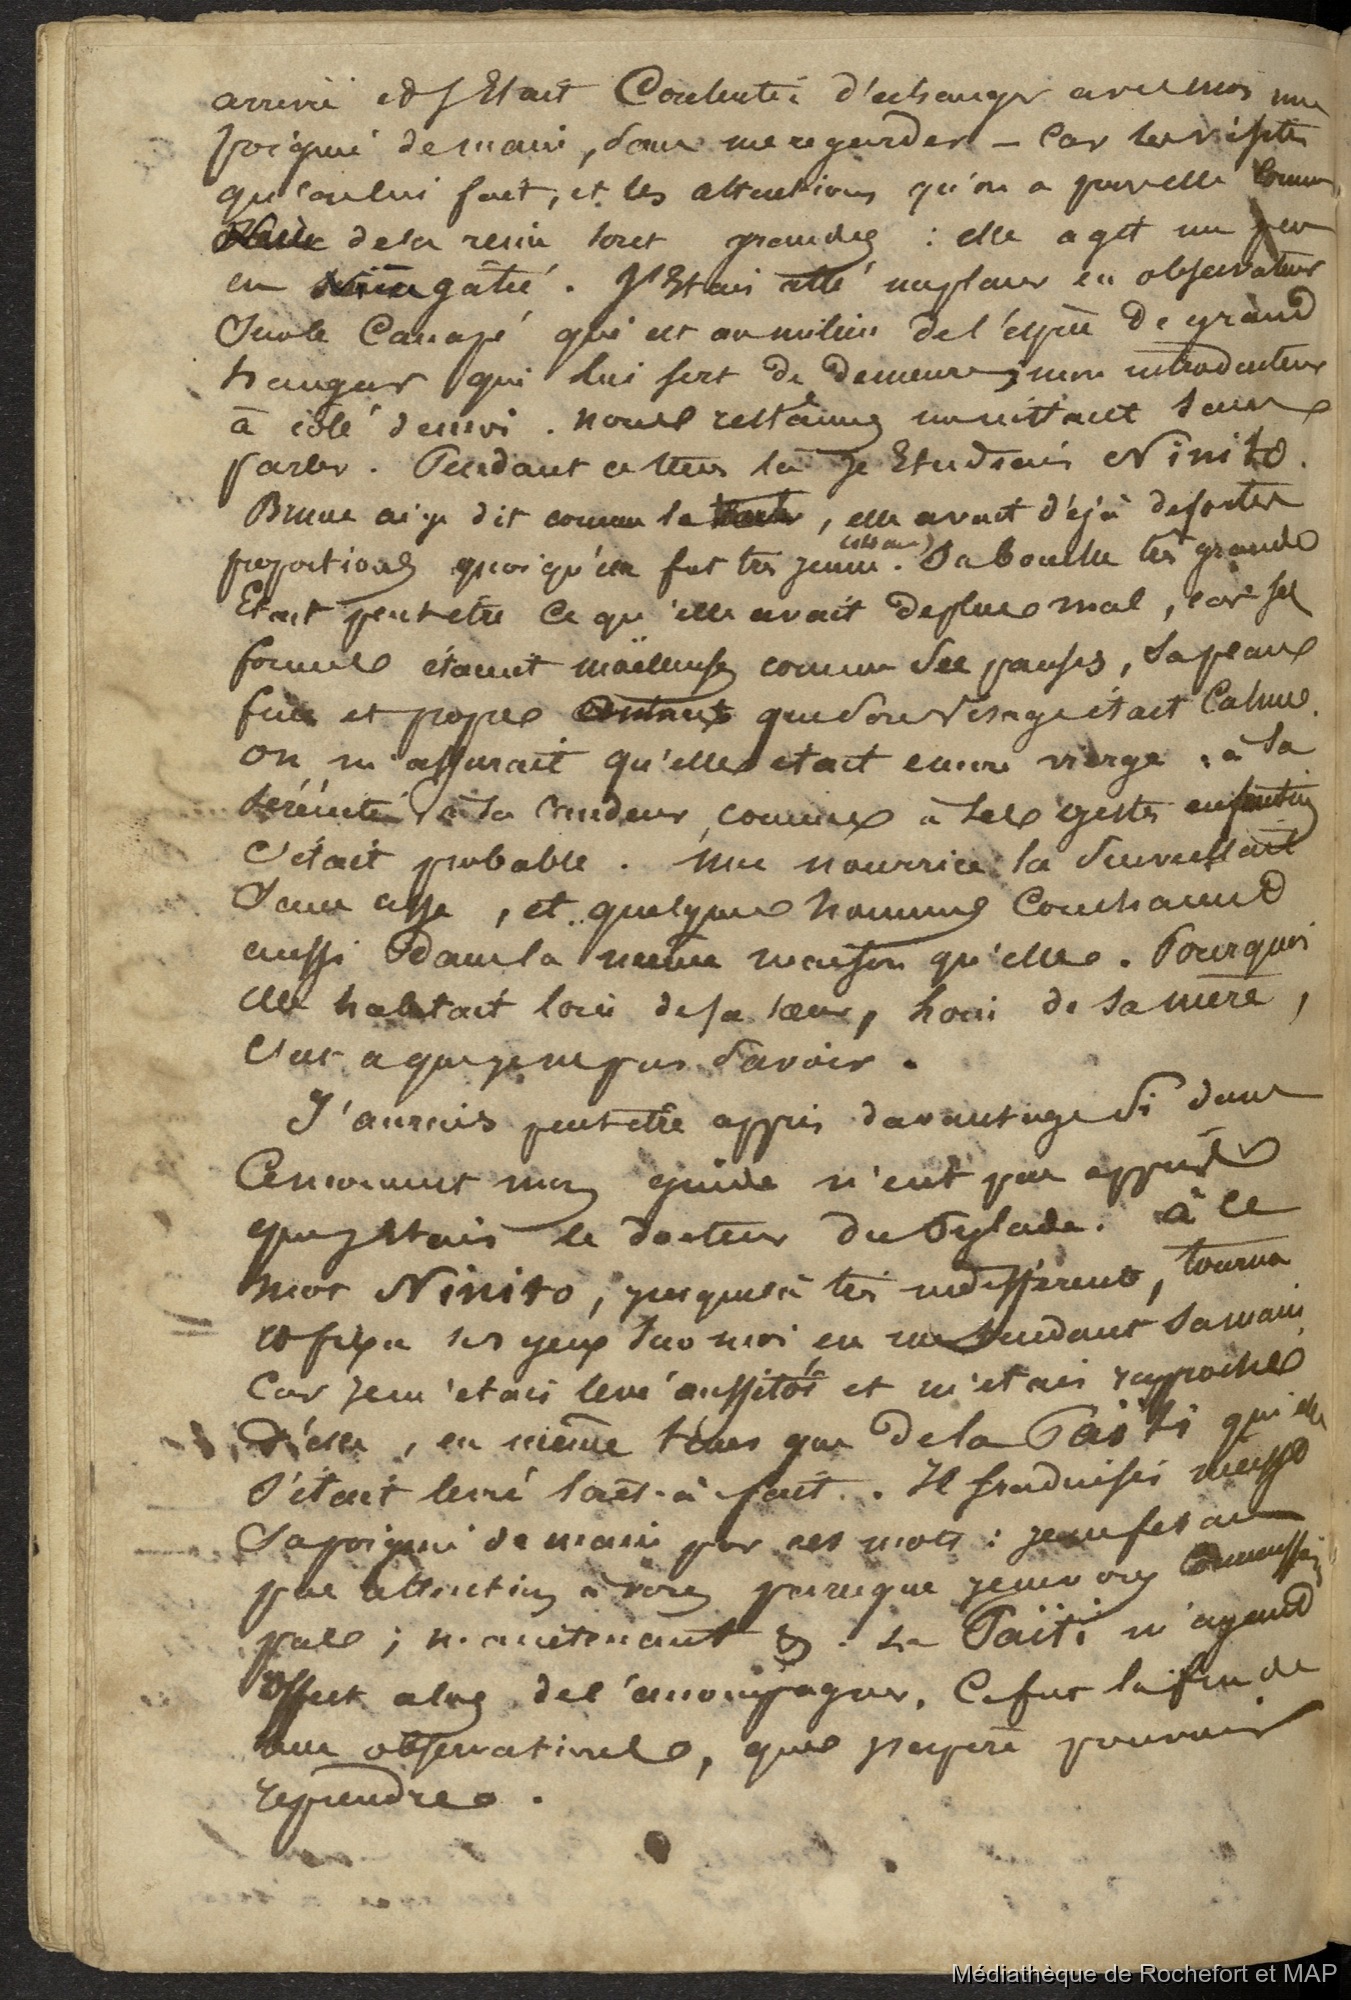 arrivée et s'était contentée d'échanger avec moi une
poignée de main, sans me regarder – car les visites
qu'on lui fait, et les attentions qu'on a pour elle comme
de la reine sont grandes : elle agit un peu
en gâtée. J'étais allé me placer en observateur
sur le canapé qui est au milieu de l'espèce de grand
hangar qui lui sert de demeure, mon introducteur
à côté de moi. nous restames un instant sans
parler. Pendant ce tems là je étudiais Ninito.
Brune ai-je dit comme la , elle avait déjà de fortes
proportions quoiqu'elle fut très jeune. Sa bouche très grande
Etait peut etre ce qu'elle avait de plus mal, car ses
formes étaient moëlleuses comme ses pauses, sa peau
fine et propre que son visage était calme.
on m'assurait qu'elle etait encore vierge, à sa
sérénité à sa candeur, comme à ses gestes enfantins
c'était probable. Une nourrice la surveillait
sans cesse, et quelques hommes couchaient
aussi dans la même maison qu'elle. Pourquoi
elle habitait loin de sa sœur, loin de sa mère,
c'est ce que je ne pus savoir.
J'aurais peut etre appris davantage si dans
ce moment mon guide n'eut pas appris
que j'étais le docteur du Pylade. à ce
mot Ninito, jusque là très indifférente, tourna
et fixa ses yeux sur moi en me tendant sa main
car je m'etais levé aussitôt et m'etais rapproché
d'elle, en même tems que de la Taïti qui elle
s'était levé tout-à-fait. Il traduisit
sa poignée de main par ces mots : je ne fesais
pas attention à vous parceque je ne vous connaissais
pas ; maintenant &. La Taïti m'ayant
offert alors de l'accompagner, ce fut la fin de
mes observations, que j'espère pouvoir
reprendre.
Médiathèque de Rochefort et MAP